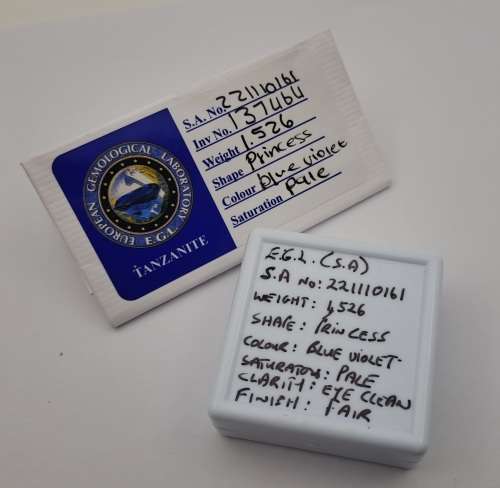 EUROPEAN GEMOLOGICAL LABORATORY
E.G.L.
TANZANITE
S.A. No. 221110161
Inv No. 137464
Weight 1.526
Shape Princess
Colour blue violet
Saturation Pale
E.G.L. (S.A)
S.A NO: 221110161
WEIGHT: 1.526
SHAPE: PRINCESS
COLOUR: BLUE VIOLET
SATURATION: PALE
CLARITY: EYE CLEAN
FINISH: FAIR